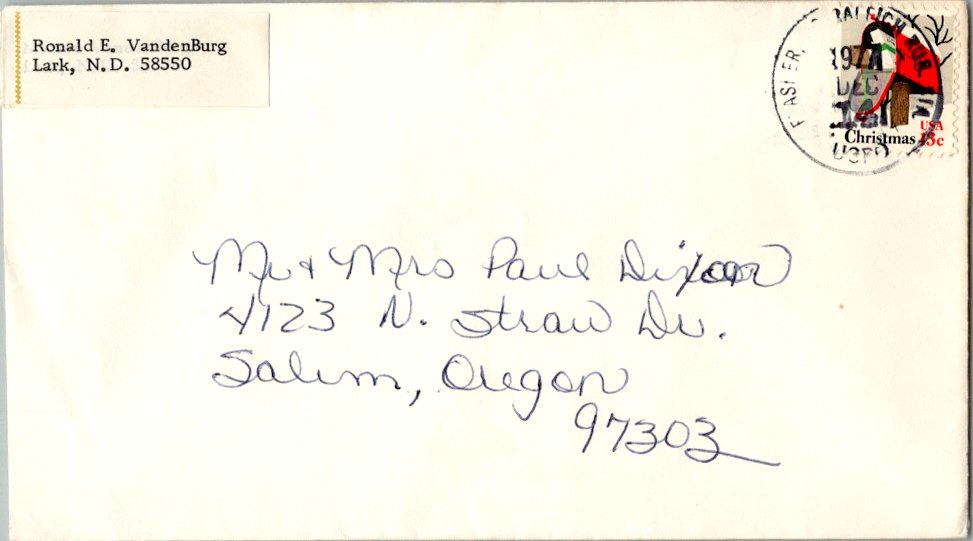 Ronald E. VandenBurg
Lark, N.D. 58550
RALEIGH
1977
DEC
USPO
USA
Christmas 13c
Mr & Mrs Paul Dixon
4123 N. Straw Dr.
Salem, Oregon
97303